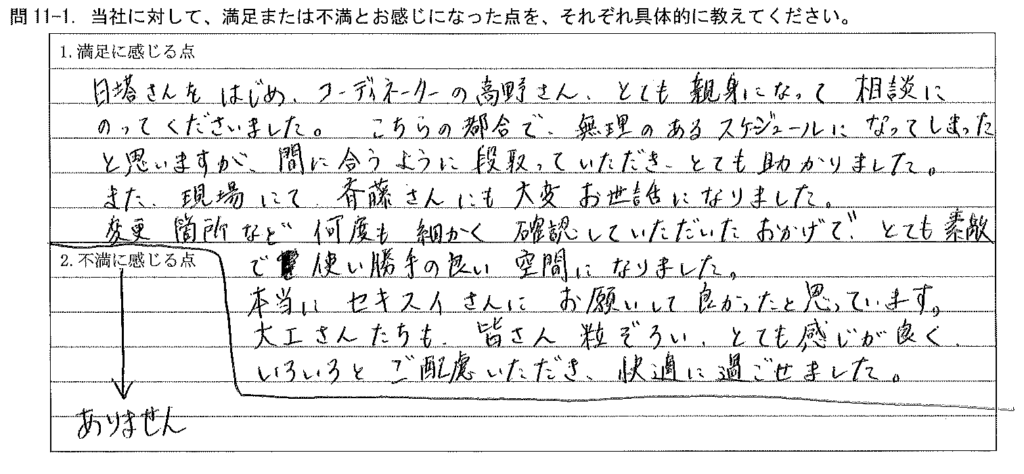 問11-1. 当社に対して、満足または不満とお感じになった点を、それぞれ具体的に教えてください。
1. 満足に感じる点
日塔さんをはじめ、コーディネーターの高野さん、とても親身になって相談に
のってくださいました。 こちらの都合で、無理のあるスケジュールになってしまった
と思いますが、間に合うように段取っていただき、とても助かりました。
また、現場にて、斉藤さんにも大変お世話になりました。
変更箇所など何度も細かく確認していただいたおかげで、とても素敵
で使い勝手の良い空間になりました。
本当にセキスイさんにお願いして良かったと思っています。
大工さんたちも、皆さん粒ぞろい、とても感じが良く、
いろいろとご配慮いただき、快適に過ごせました。
2. 不満に感じる点
ありません